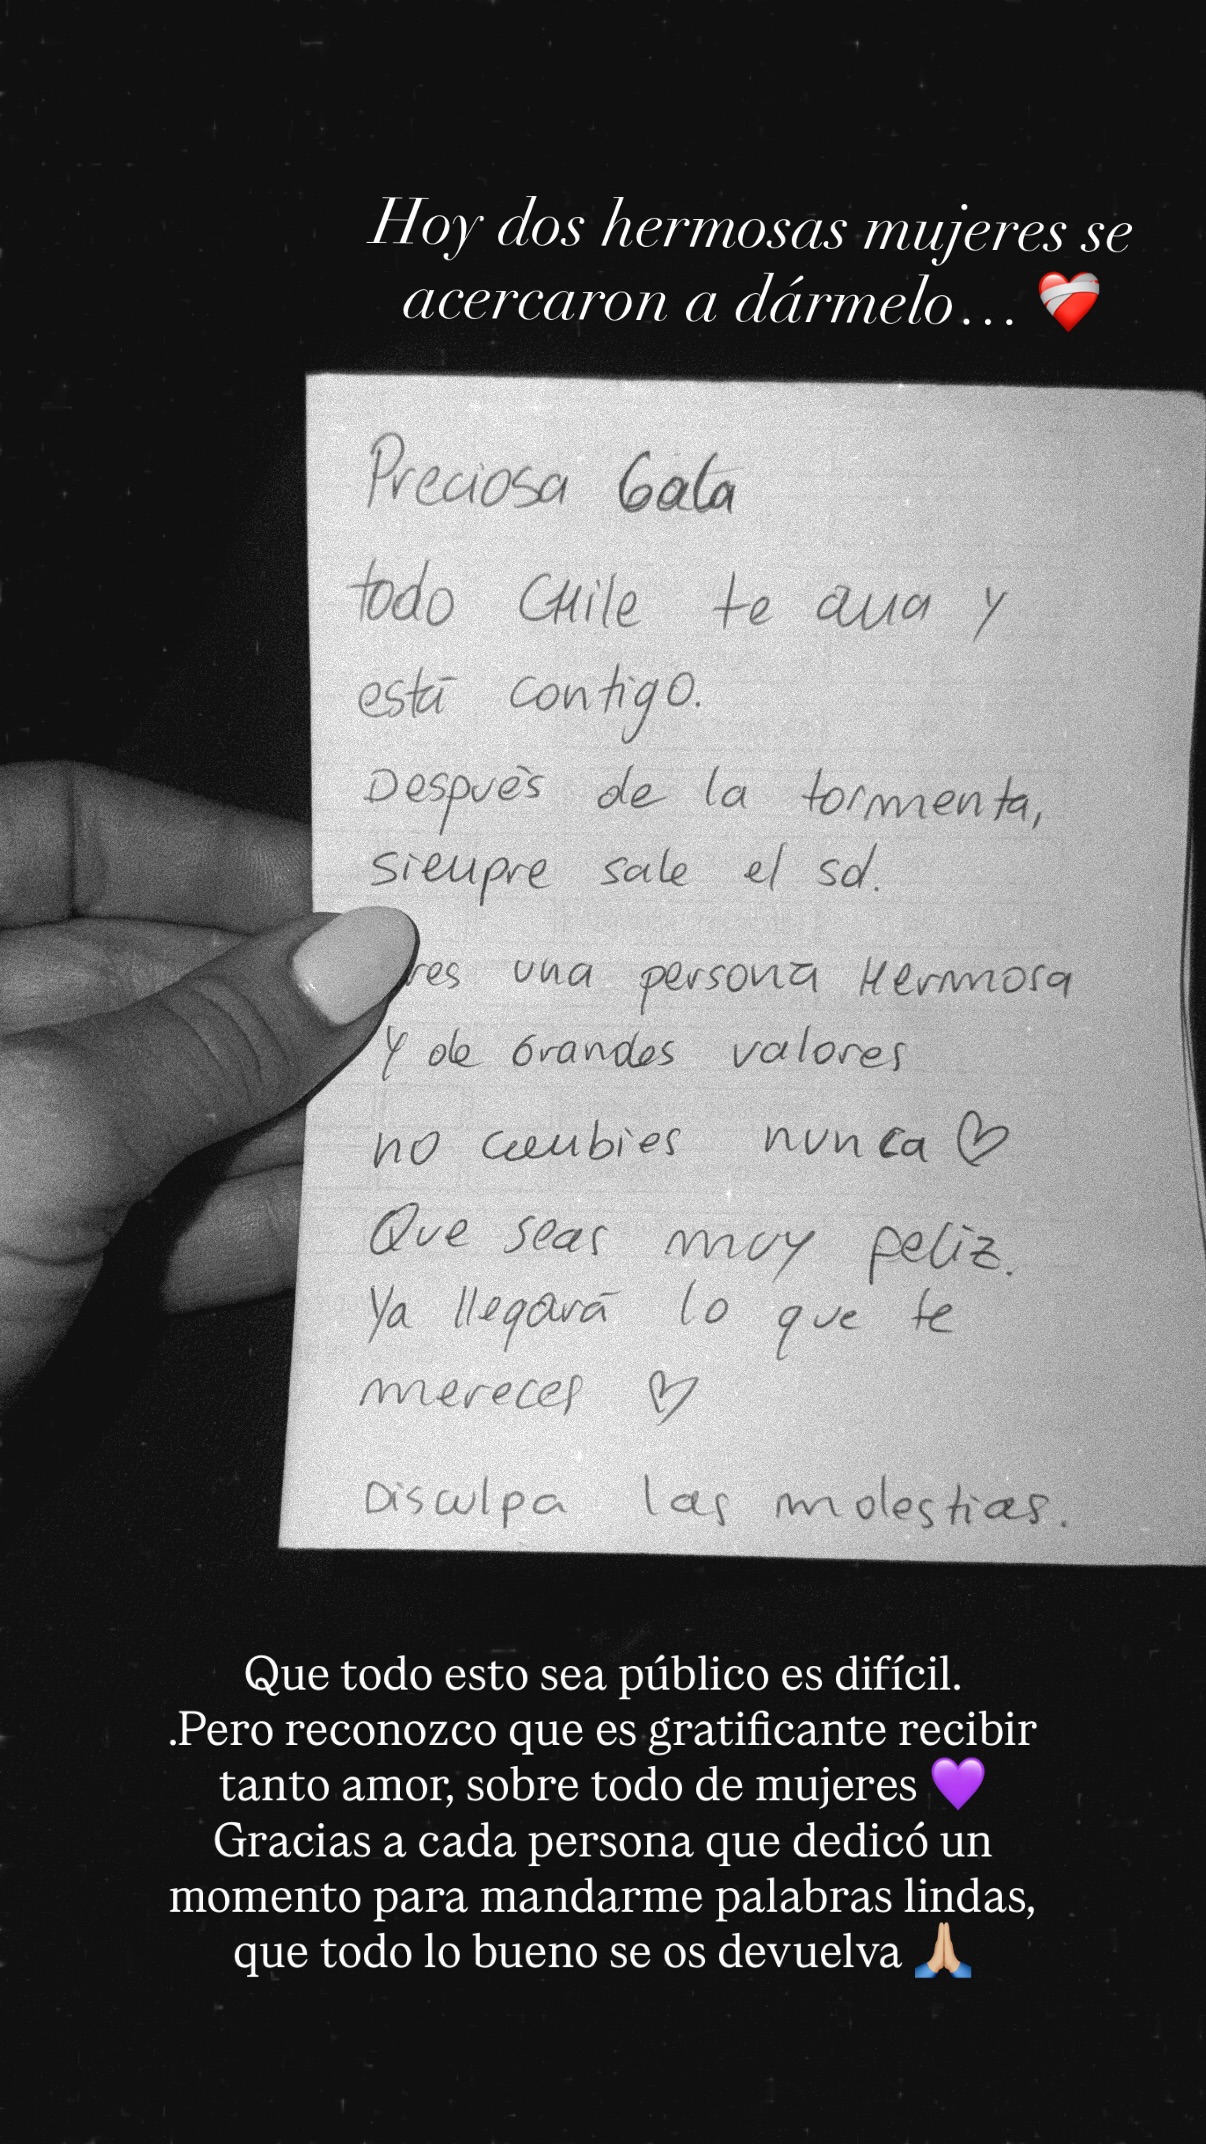 Hoy dos hermosas mujeres se
acercaron a dármelo...
Preciosa Gala
todo CHile te ama y
está contigo.
Después de la tormenta,
siempre sale el sol.
res una persona Hermosa
Y de Grandes valores
no cambies nunca
Que seas muy feliz.
Ya llegará lo que te
mereces
Disculpa las molestias.
Que todo esto sea público es difícil.
.Pero reconozco que es gratificante recibir
tanto amor, sobre todo de mujeres 💜
Gracias a cada persona que dedicó un
momento para mandarme palabras lindas,
que todo lo bueno se os devuelva 🙏🏼